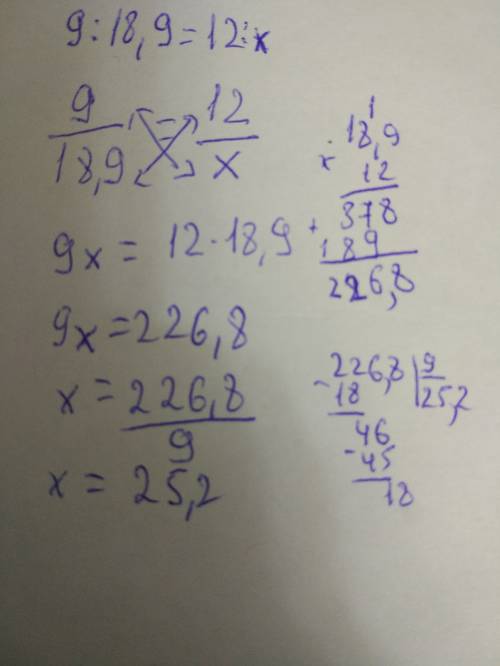 9:18,9=12:x
9/18,9 = 12/x
9x = 12·18,9
9x=226,8
x = 226,8/9
x = 25,2
1
× 18,9
1
12
378
+ 189
226,8
- 226,8 | 9
18 | 25,2
46
- 45
18